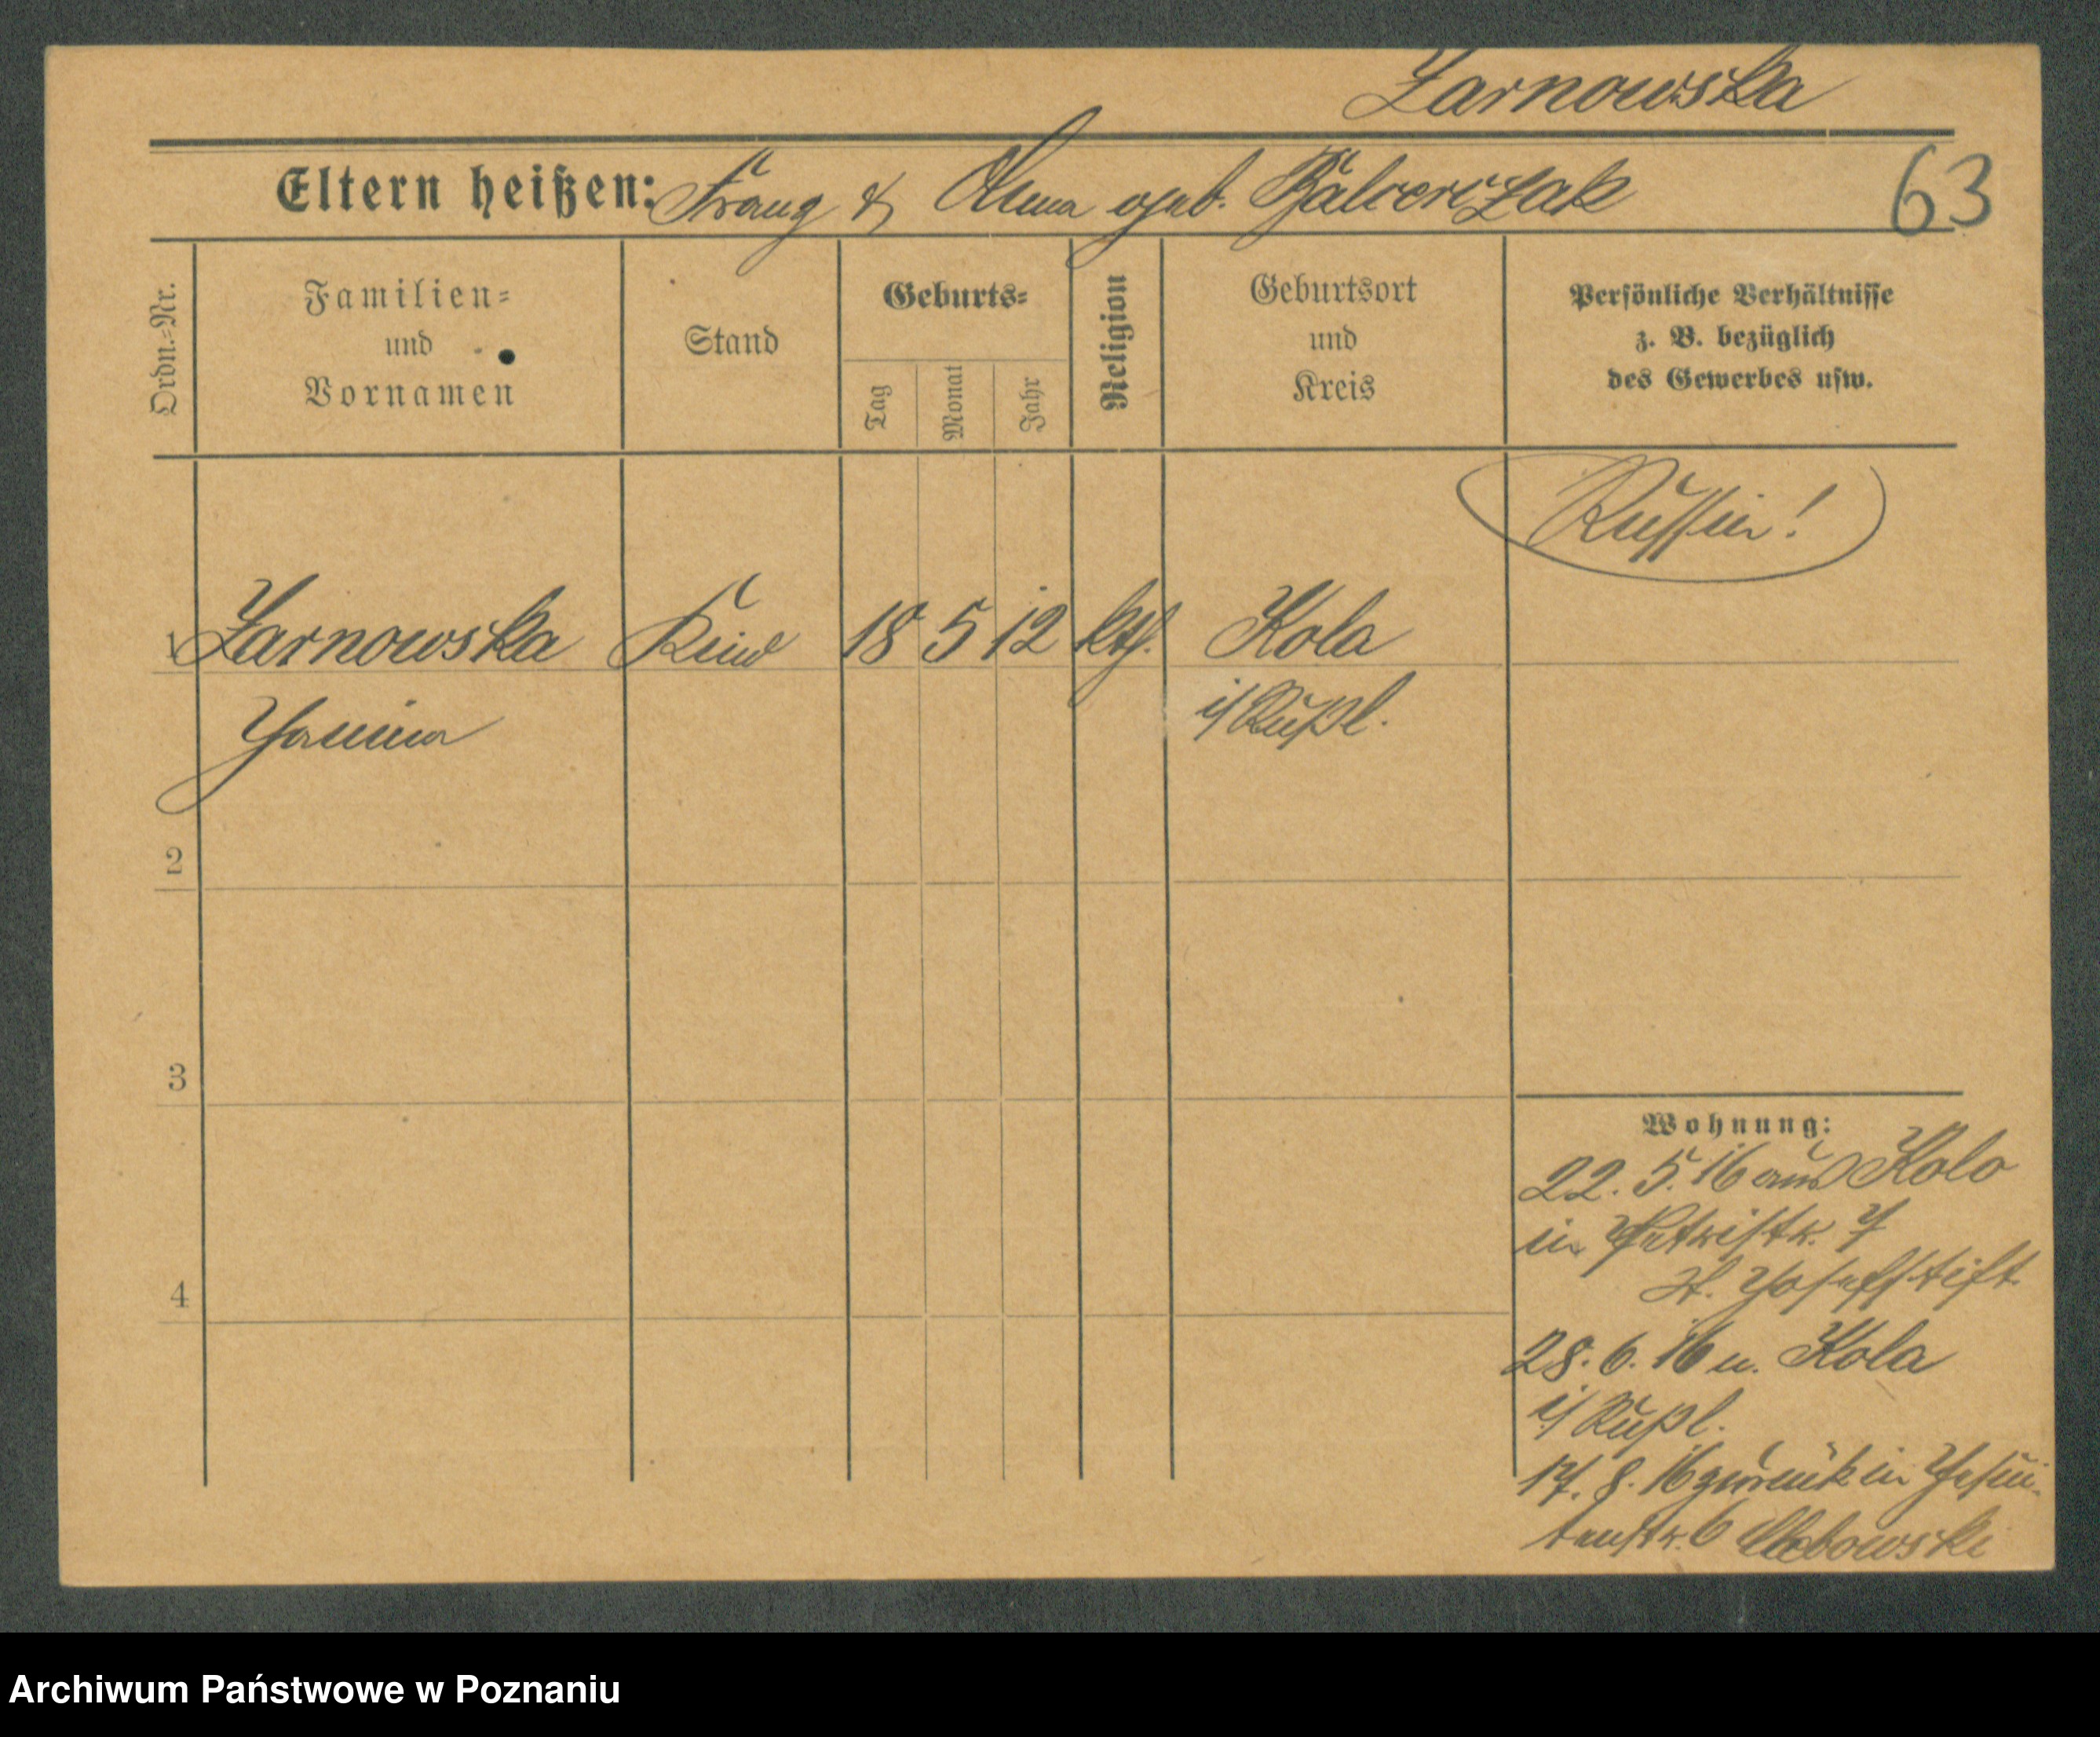 Zarnowska
Eltern heißen: Franz & Anna geb. Balcerczak
63
Ordn.-Nr.
Familien-
und
Vornamen
Stand
Geburts-
Tag
Monat
Jahr
Religion
Geburtsort
und
Kreis
Persönliche Verhältnisse
z. B. bezüglich
des Gewerbes usw.
Russin!
1 Zarnowska Kind 18 5 12 kth. Kola
Janina i/Rußl.
2
3
4
Wohnung:
22. 5. 16 aus Kolo
in Petristr. 7
St. Josefstift
28. 6. 16 n. Kola
i/Rußl.
17. 8. 16 zurück in Jesui-
tenstr. 6
Archiwum Państwowe w Poznaniu